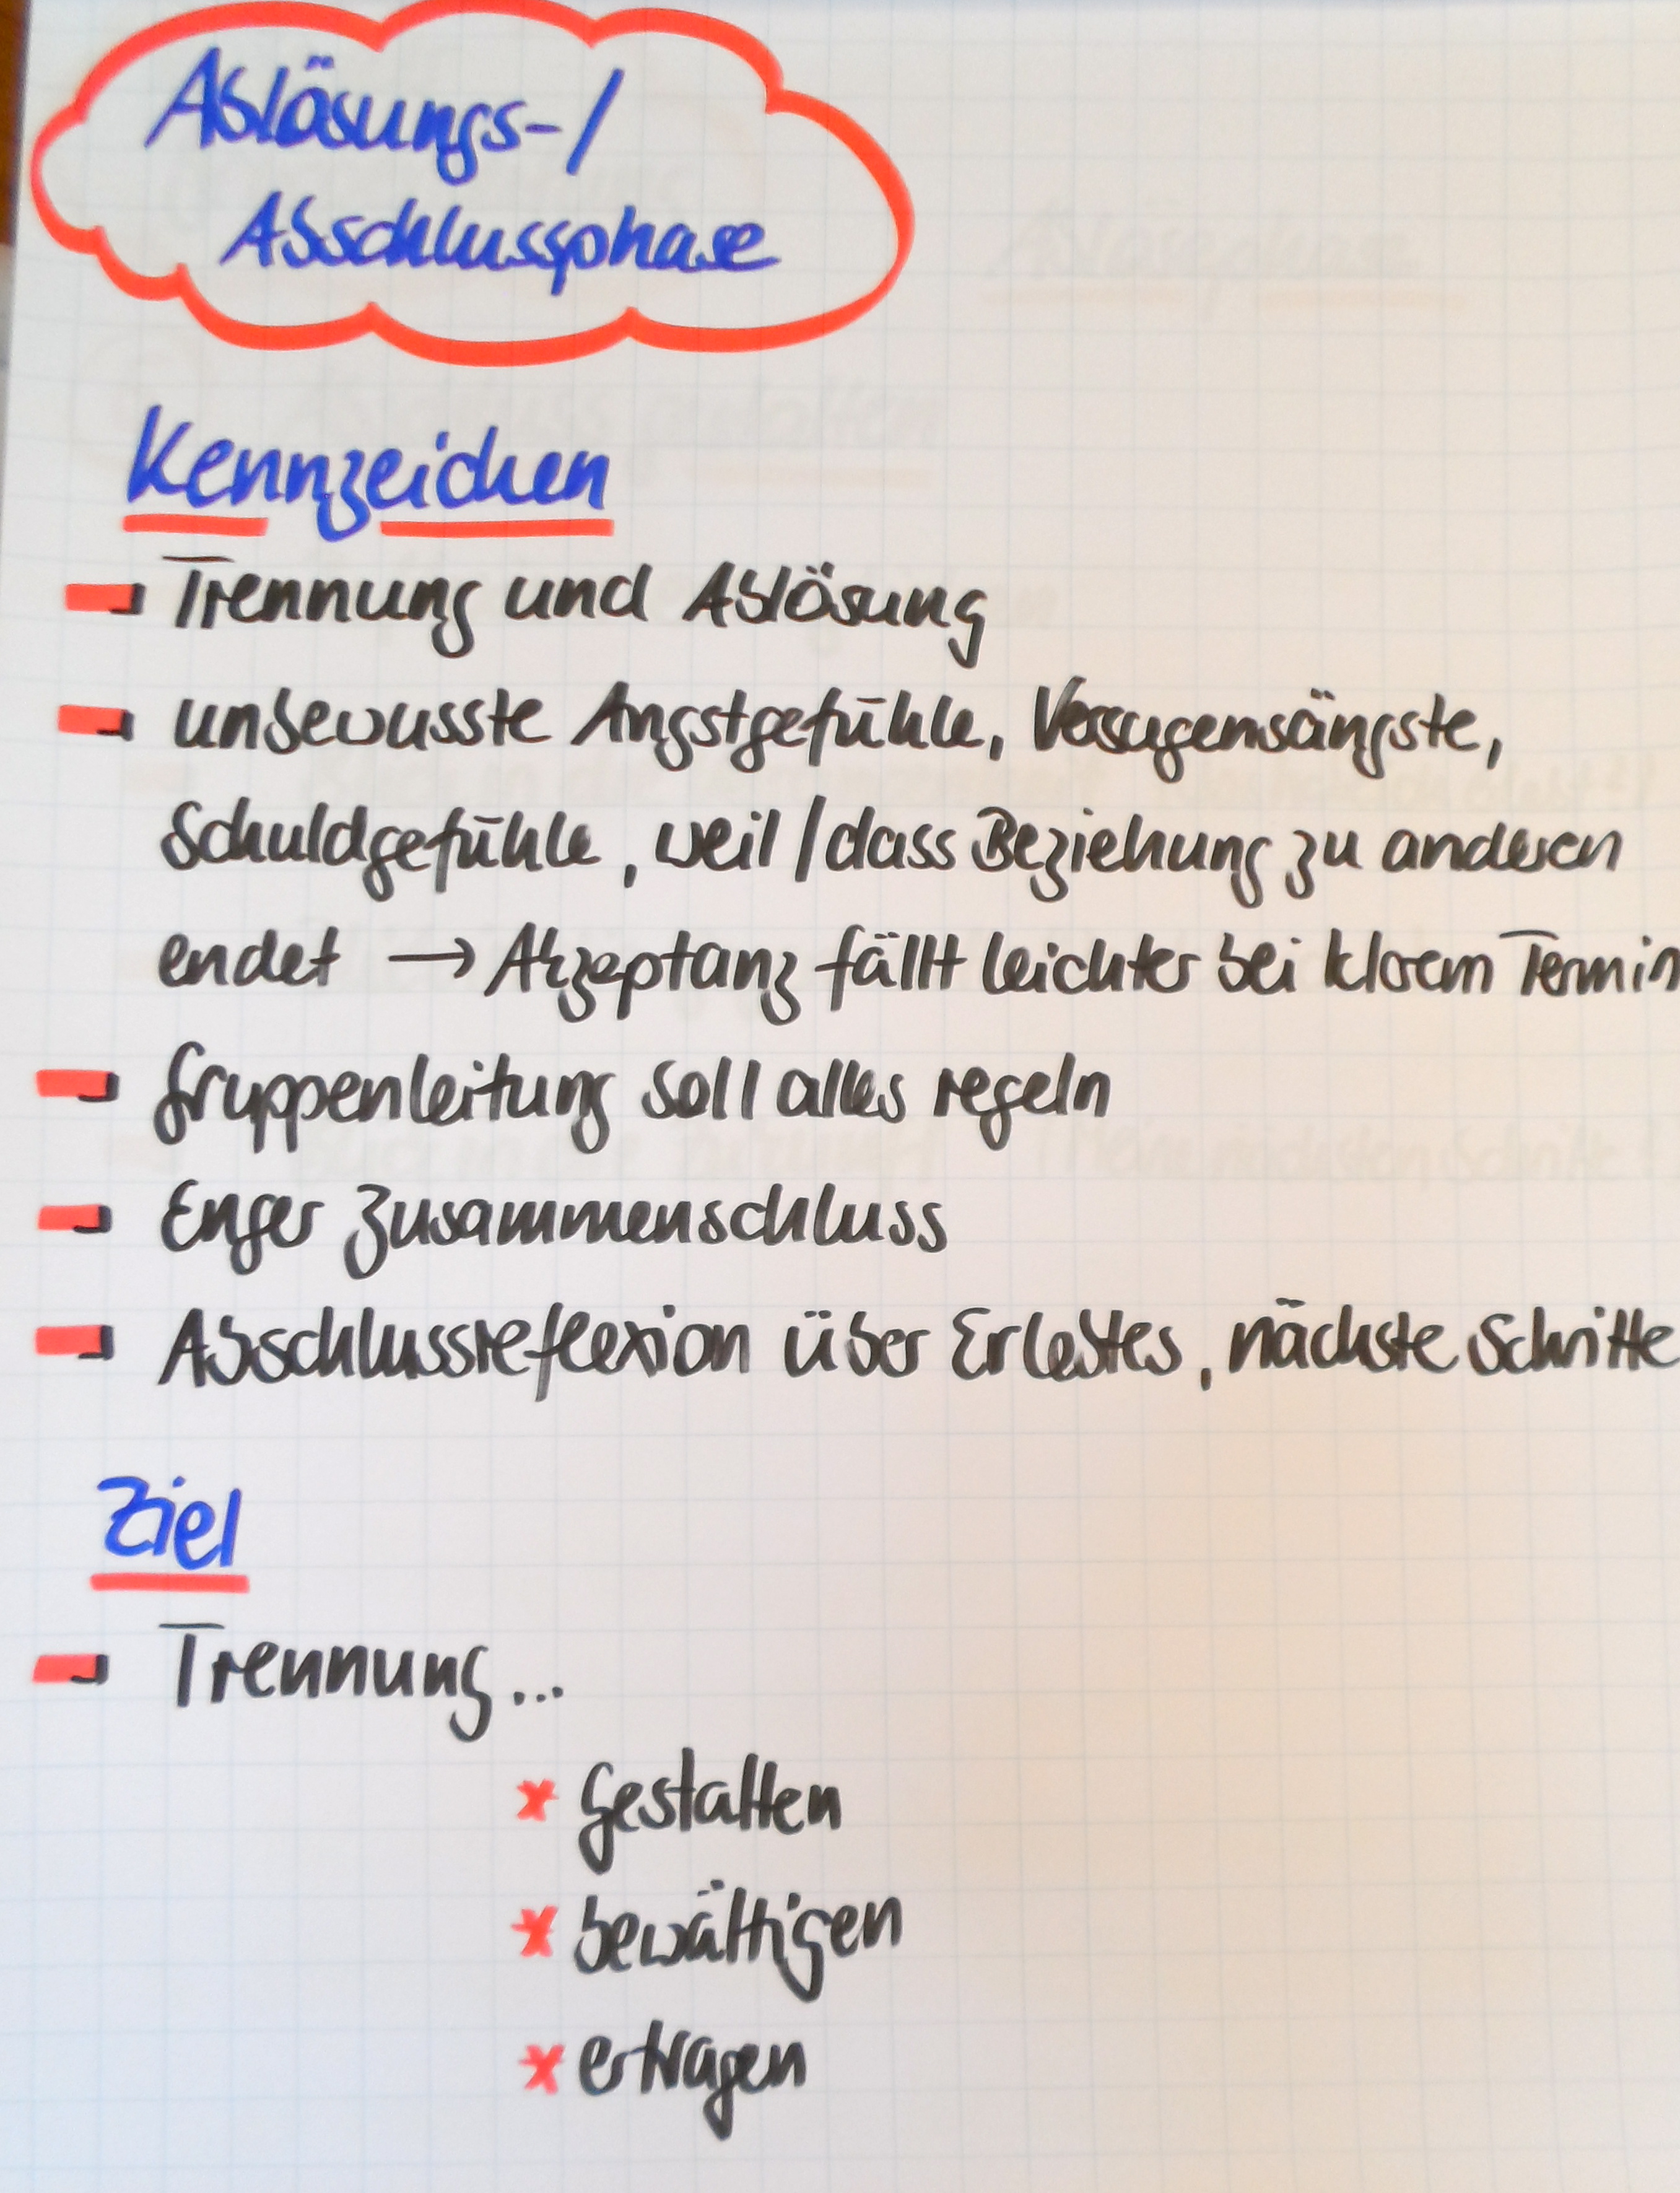 Ablösungs-/
Abschlussphase
Kennzeichen
Trennung und Ablösung
unbewusste Angstgefühle, Versagensängste,
Schuldgefühle, weil/dass Beziehung zu anderen
endet → Akzeptanz fällt leichter bei klarem Termin
Gruppenleitung soll alles regeln
Enger Zusammenschluss
Abschlussreflexion über Erlebtes, nächste Schritte
Ziel
Trennung...
x gestalten
x bewältigen
x ertragen